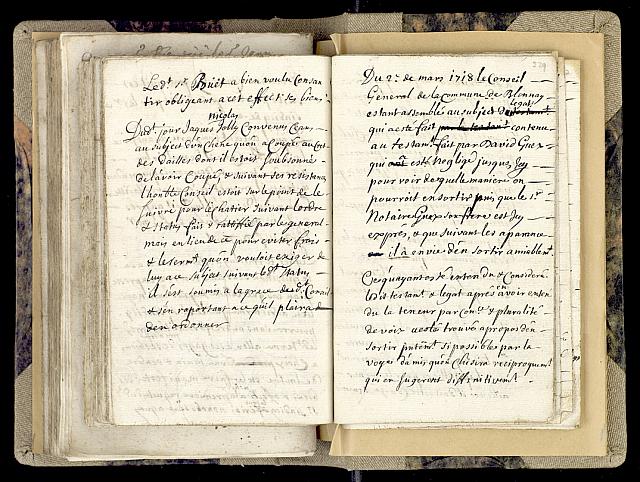 Led.t S.r Buët a bien voulu Consan
tir obligeant a cet effect ses biens
nicolas
Dud.t jour Jaques Jolly Convenu Céans
au subject d'un Chene quon a Coupé au
des dailles dont il estoit soubsonné
de lavoir Coupé, & suivant ses
l'honble Conseil estoit sur le point de le
suivre pour le chatier suivant lordre
& Statuts fait & rattiffié par le general
mais en lieu de ce pour eviter frais
& le serm.t quon vouloit exiger de
luy au subject suivant led.t Statu
il s'est soumis a la grace du d.t Conseil
& s'en raportant a ce quil plaira
den ordonner
229
Du 2.e de mars 1718 le Conseil
General de la Commune de Blonnay
estant assemblés au subject du
legat
qui a esté fait contenu
au testam.t fait par David Guex
qui esté negligé jusques Icy
pour voir de quelle maniere on
pourroit en sortir puis que le S.r
Notaire Guex son frere est Icy
exprés, & que suivant les aparance
il à envie d'en sortir amiablem.t
Ce qu'ayant esté entendu & Considéré
led.t testam.t & legat apres en avoir enten
du la teneur par & pluralité
de voix at esté trouvé apropos d'en
sortir si possibles par la
voye d'amis qu'on Choisira reciproquem.t
qui en Jugeront diffinitivem.t